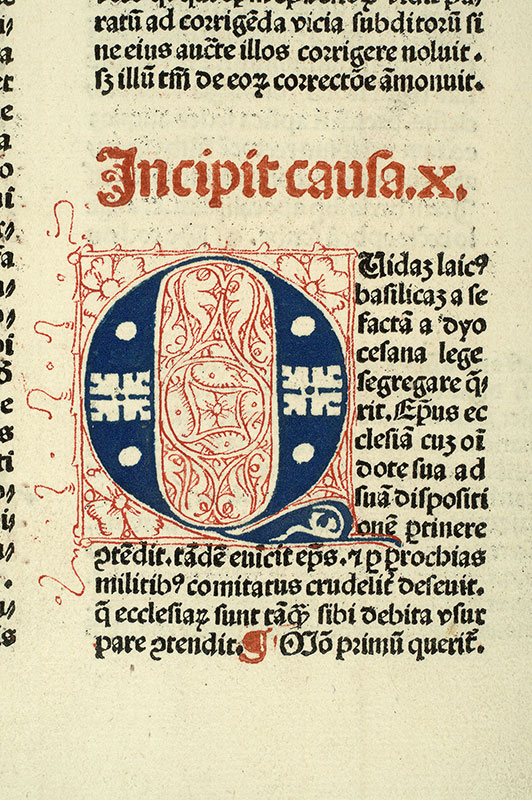 ratū ad corrigēda vicia subditorū si
ne eius auct̄e illos corrigere noluit.
sꝫ illū tm̄ de eoꝝ correctōe āmonuit.
Incipit causa.x.
Quidaꝫ laicꝰ
basilicaꝫ a se
factā a dyo
cesana lege
segregare q̄
rit. Ep̄us ec
clesiā cuꝫ oī
dote sua ad
suā dispositi
onē ꝑtinere
ↄtēdit. tādē euicit ep̄s. ⁊ ꝑ ꝑrochias
militibꝰ comitatus crudelit̄ deseuit.
q̄ ecclesiaꝝ sunt tāq̄ꝫ sibi debita vsur
pare ↄtendit. ¶ Mō primū querit̄.